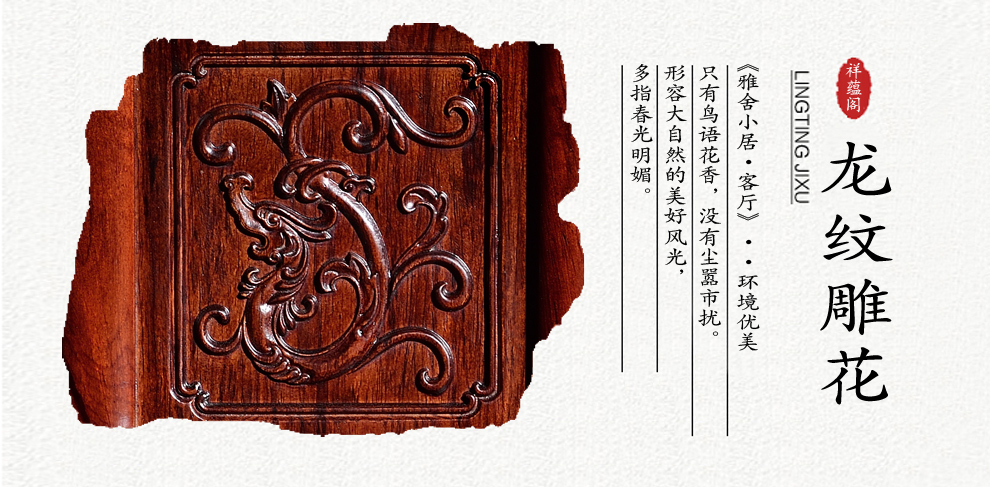 祥蕴阁
龙纹雕花
LINGTING JIXU
《雅舍小居·客厅》··环境优美
只有鸟语花香，没有尘嚣市扰。
形容大自然的美好风光，
多指春光明媚。